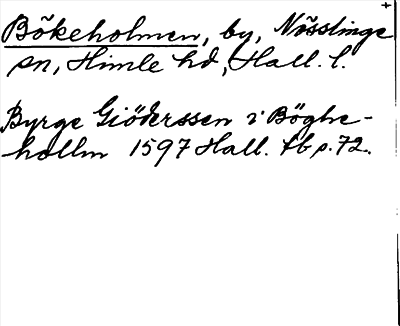 Bökeholmen, by, Nösslinge
sn, Himle hd, Hall. l.
Byrge Giöderssen i Böghe-
hollm 1597 Hall. tb p. 72.